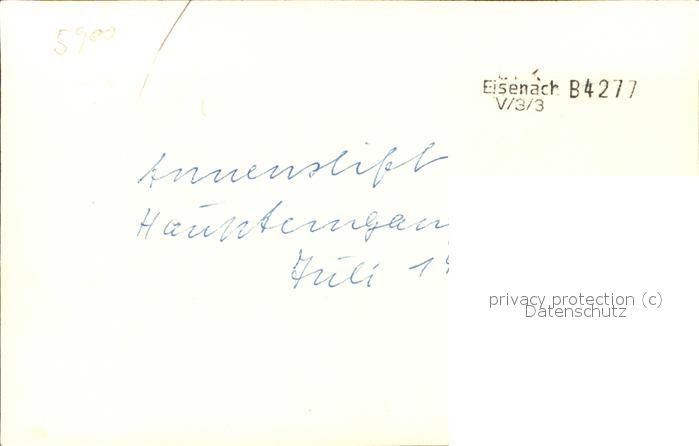 5900
Eisenach B4277
V/3/3
Annenstift
Haupteingan
Juli 19
privacy protection (c)
Datenschutz